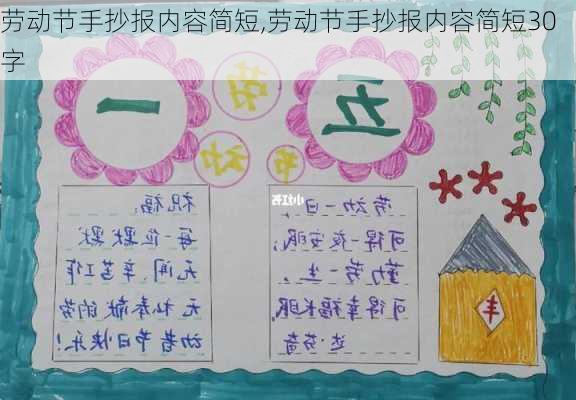 劳动节手抄报内容简短,劳动节手抄报内容简短30
字
五一
小红书
劳动一日,
可得一夜安眠;
勤劳一生,
可得幸福长眠
达·芬奇
祝福:
每一位默默
无闻、辛苦工作
无私奉献的劳
动者节日快乐!
丰